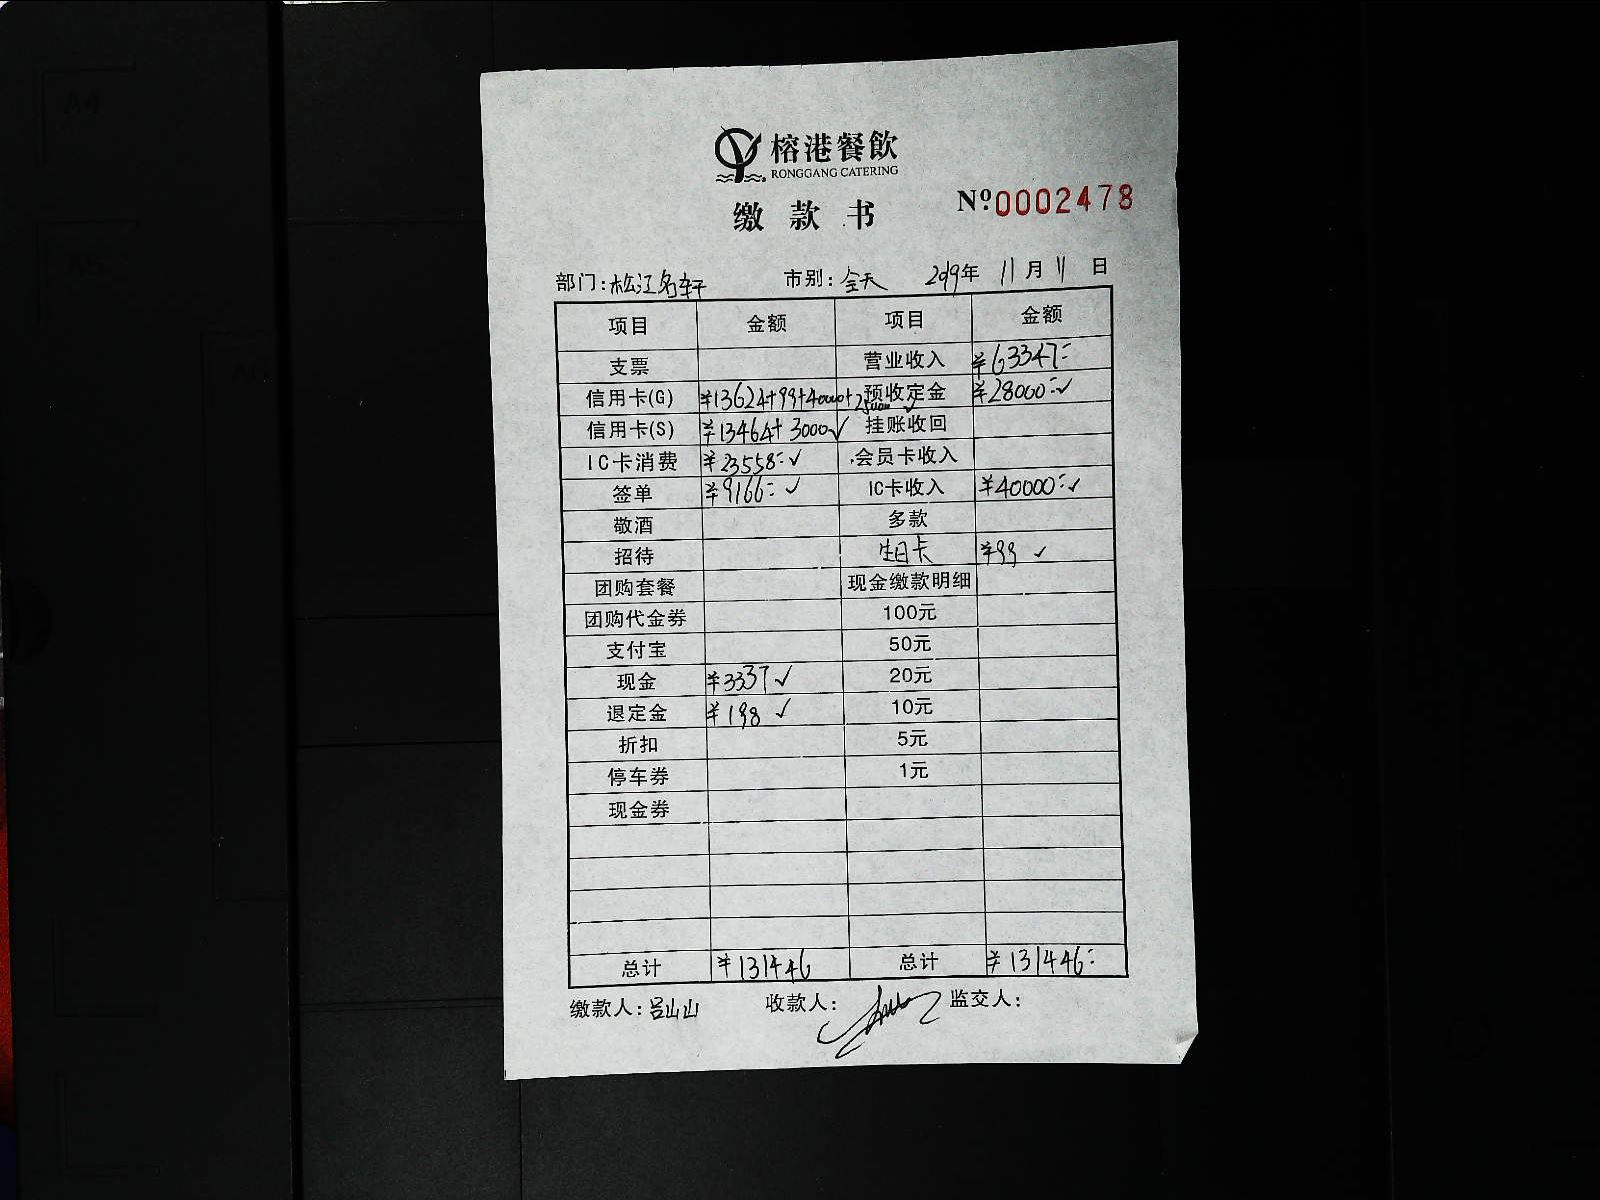 榕港餐飲
RONGGANG CATERING
缴款书
Nº0002478
部门:松江名轩 市别:全天 2019年 11月 11日
项目 金额 项目 金额
支票 营业收入 ¥63347:
信用卡(G) ¥13624+99+40000+25000✓ 预收定金 ¥28000:✓
信用卡(S) ¥13464+3000✓ 挂账收回
IC卡消费 ¥23558:✓ 会员卡收入
签单 ¥9166:✓ IC卡收入 ¥40000:✓
敬酒 多款
招待 生日卡 ¥99 ✓
团购套餐 现金缴款明细
团购代金券 100元
支付宝 50元
现金 ¥3337 ✓ 20元
退定金 ¥198 ✓ 10元
折扣 5元
停车券 1元
现金券
总计 ¥131446 总计 ¥131446:
缴款人:吕山山 收款人: 监交人: